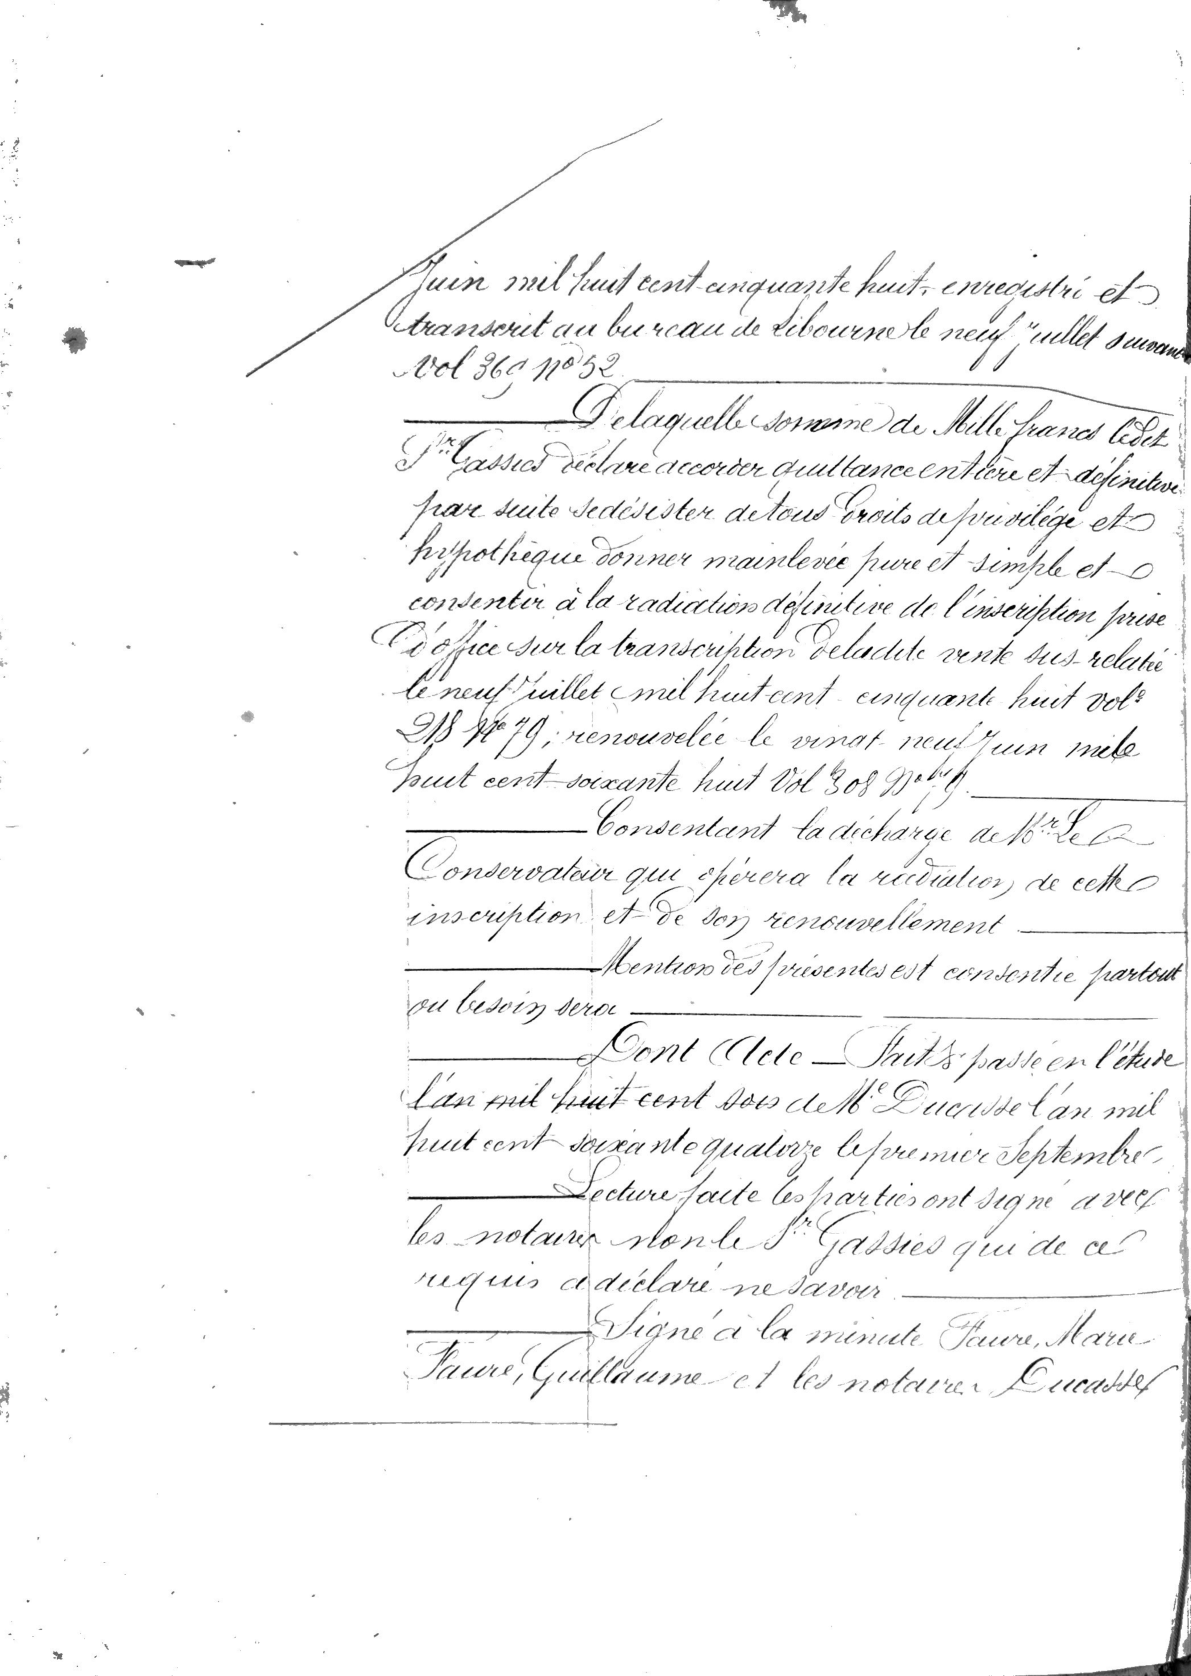 Juin mil huit cent cinquante huit, enregistré et
transcrit au bureau de Libourne le neuf juillet suivant
vol 369 no 52
De laquelle somme de Mille francs ledit
Sr Gassies déclare accorder quittance entière et définitive
par suite se désister de tous droits de privilége et
hypothèque donner mainlevée pure et simple et
consentir à la radiation définitive de l'inscription prise
d'office sur la transcription de ladite vente sus-relatée
le neuf Juillet mil huit cent cinquante huit vol.
218 No 79; renouvelée le vingt neuf Juin mil
huit cent soixante huit Vol 308
Consentant la décharge de Mr Le
Conservateur qui opérera la radiation de cette
inscription et de son renouvellement
Mention des présentes est consentie partout
ou besoin sera
Dont Acte — Fait & passé en l'étude
l'an mil huit cent sois de Me Ducasse l'an mil
huit cent soixante quatorze le premier Septembre.
Lecture faite les parties ont signé avec
les notaires non le Sr Gassies qui de ce
requis a déclaré ne savoir
Signé à la minute Faure, Marie
Faure, Guillaume et les notaires Ducasse